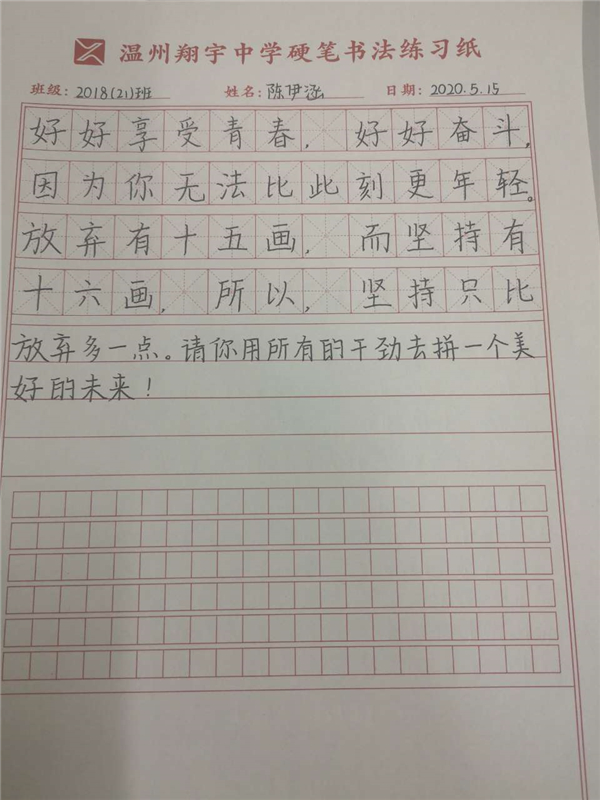 温州翔宇中学硬笔书法练习纸
班级：2018(21)班 姓名：陈伊涵 日期：2020.5.15
好好享受青春，好好奋斗，
因为你无法比此刻更年轻。
放弃有十五画，而坚持有
十六画，所以，坚持只比
放弃多一点。请你用所有的干劲去拼一个美
好的未来！